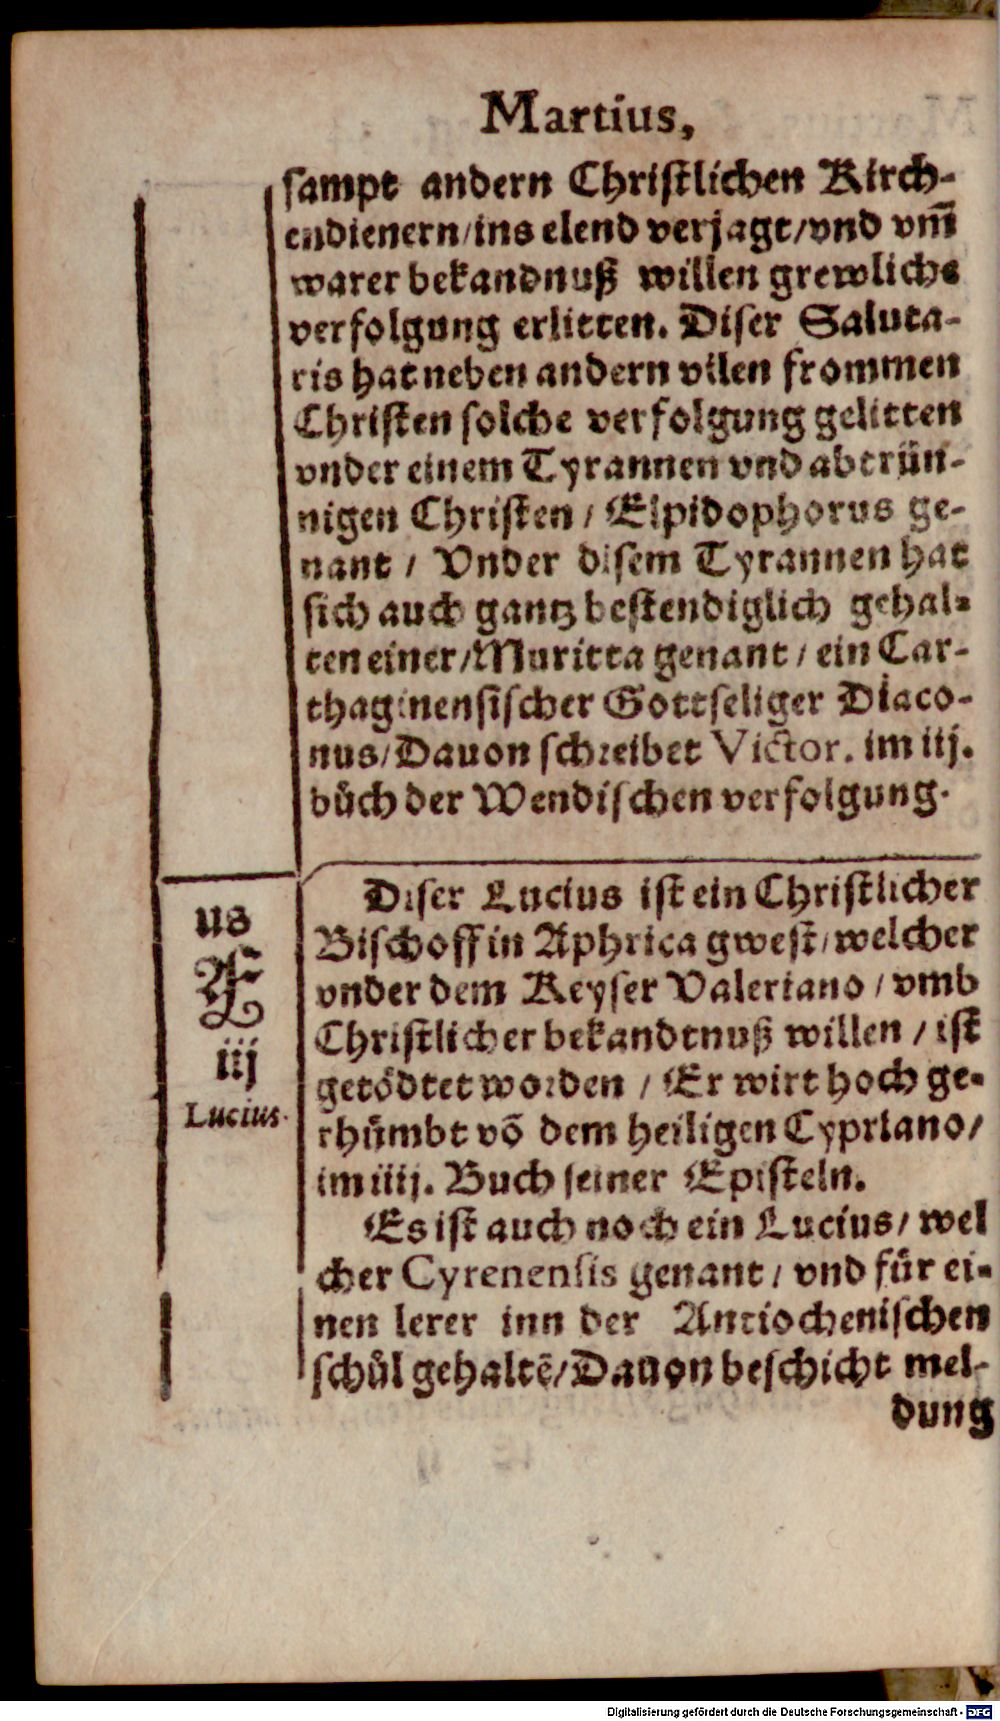 Martius,
sampt andern Christlichen Kirch-
endienern/ins elend verjagt/vnd vm̄
warer bekandnuß willen grewlichs
verfolgung erlitten. Diser Saluta-
ris hat neben andern vilen frommen
Christen solche verfolgung gelitten
vnder einem Tyrannen vnd abtrün-
nigen Christen / Elpidophorus ge-
nant / Vnder disem Tyrannen hat
sich auch gantz bestendiglich gehal-
ten einer/Muritta genant / ein Car-
thaginensischer Gottseliger Diaco-
nus/Dauon schreibet Victor. im iij.
bůch der Wendischen verfolgung.
us
F
iij
Lucius.
Diser Lucius ist ein Christlicher
Bischoff in Aphrica gwest/welcher
vnder dem Keyser Valeriano / vmb
Christlicher bekandtnuß willen / ist
getödtet worden / Er wirt hoch ge-
rhümbt võ dem heiligen Cypriano/
im iiij. Buch seiner Episteln.
Es ist auch noch ein Lucius/ wel
cher Cyrenensis genant / vnd für ei-
nen lerer inn der Antiochenischen
schůl gehaltẽ/Dauon beschicht mel-
dung
Digitalisierung gefördert durch die Deutsche Forschungsgemeinschaft - DFG